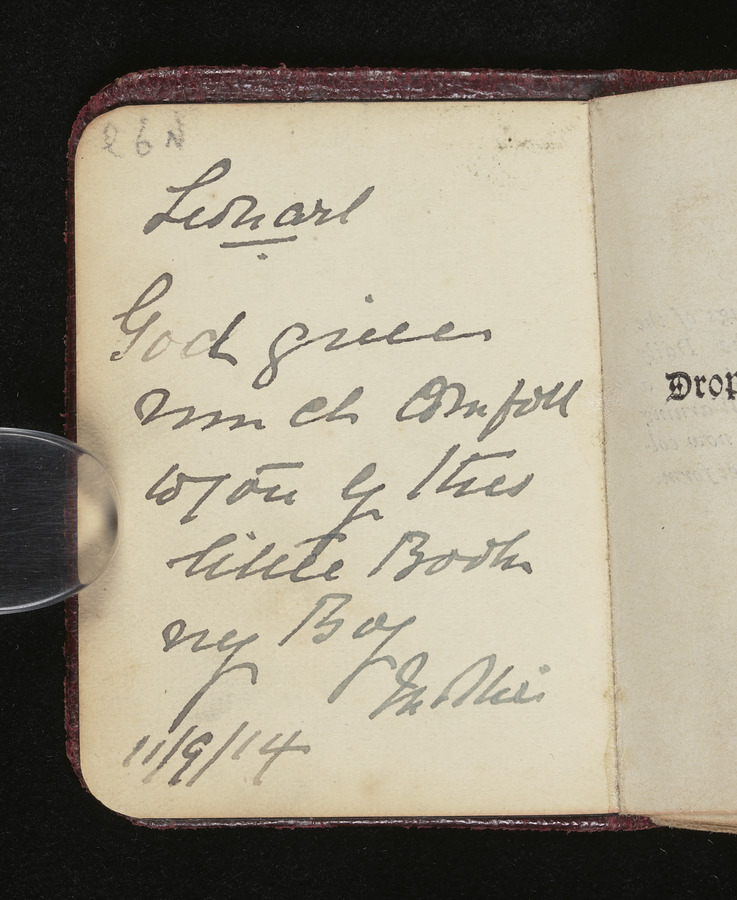 Leonard
God gives
much comfort
to you by this
little Book
my Boy
Mother
11/9/14
Drop